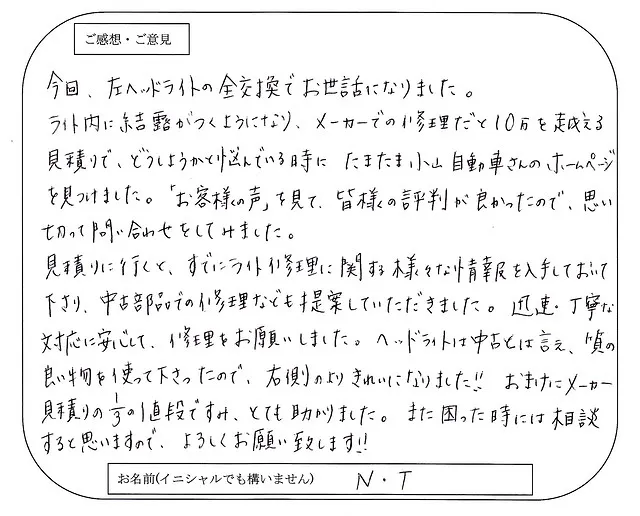 ご感想・ご意見
今回、左ヘッドライトの全交換でお世話になりました。
ライト内に結露がつくようになり、メーカーでの修理だと10万を越える
見積りで、どうしようかと悩んでいる時に たまたま小山自動車さんのホームページ
を見つけました。「お客様の声」を見て、皆様の評判が良かったので、思い
切って問い合わせをしてみました。
見積りに行くと、すでにライト修理に関する様々な情報を入手しておいて
下さり、中古部品での修理なども提案していただきました。迅速・丁寧な
対応に安心して、修理をお願いしました。ヘッドライトは中古とは言え、質の
良い物を使って下さったので、右側のよりきれいになりました!! おまけにメーカー
見積りの1/3の値段ですみ、とても助かりました。また困った時には相談
すると思いますので、よろしくお願い致します!!
お名前(イニシャルでも構いません) N・T